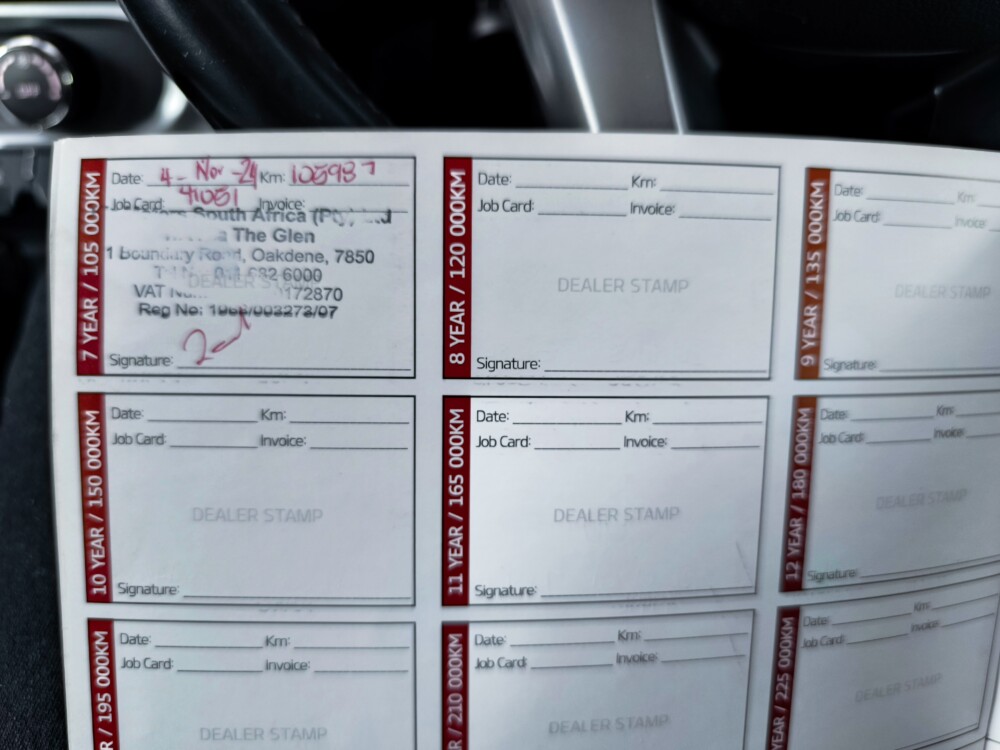 7 YEAR / 105 000KM
Date: 4 - Nov -24 Km: 105987
Job Card: 41051 Invoice:
South Africa (Pty)
The Glen
1 Boundary Road, Oakdene, 7850
682 6000
DEALER STAMP
VAT 172870
Reg No: /07
Signature:
8 YEAR / 120 000KM
Date: Km:
Job Card: Invoice:
DEALER STAMP
Signature:
9 YEAR / 135 000KM
Date: Km:
Job Card: Invoice:
DEALER STAMP
Signature:
10 YEAR / 150 000KM
Date: Km:
Job Card: Invoice:
DEALER STAMP
Signature:
11 YEAR / 165 000KM
Date: Km:
Job Card: Invoice:
DEALER STAMP
Signature:
12 YEAR / 180 000KM
Date: Km:
Job Card: Invoice:
DEALER STAMP
Signature:
/ 195 000KM
Date: Km:
Job Card: Invoice:
DEALER STAMP
/ 210 000KM
Date: Km:
Job Card: Invoice:
DEALER STAMP
YEAR / 225 000KM
Date: Km:
Job Card: Invoice:
DEALER STAMP